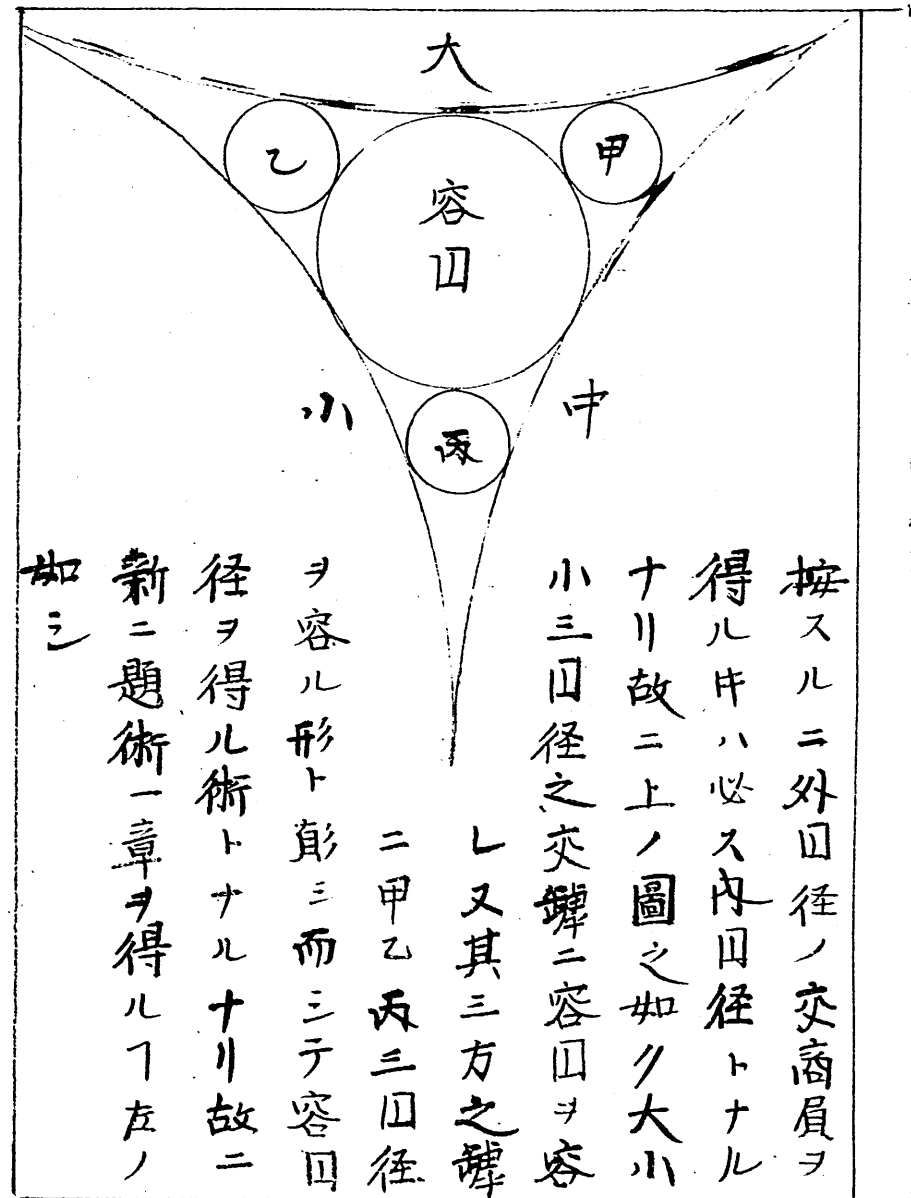 大
甲
乙
容円
中
小
丙
按スルニ外円径ノ交商員ヲ
得ル𪜈ハ必ス内円径トナル
ナリ故ニ上ノ圖之如ク大小
小三円径之交罅ニ容円ヲ容
レ又其三方之罅
ニ甲乙丙三円径
ヲ容ル形ト彭ミ而シテ容円
径ヲ得ル術トナルナリ故ニ
新ニ題術一章ヲ得ルヿ左ノ
如シ